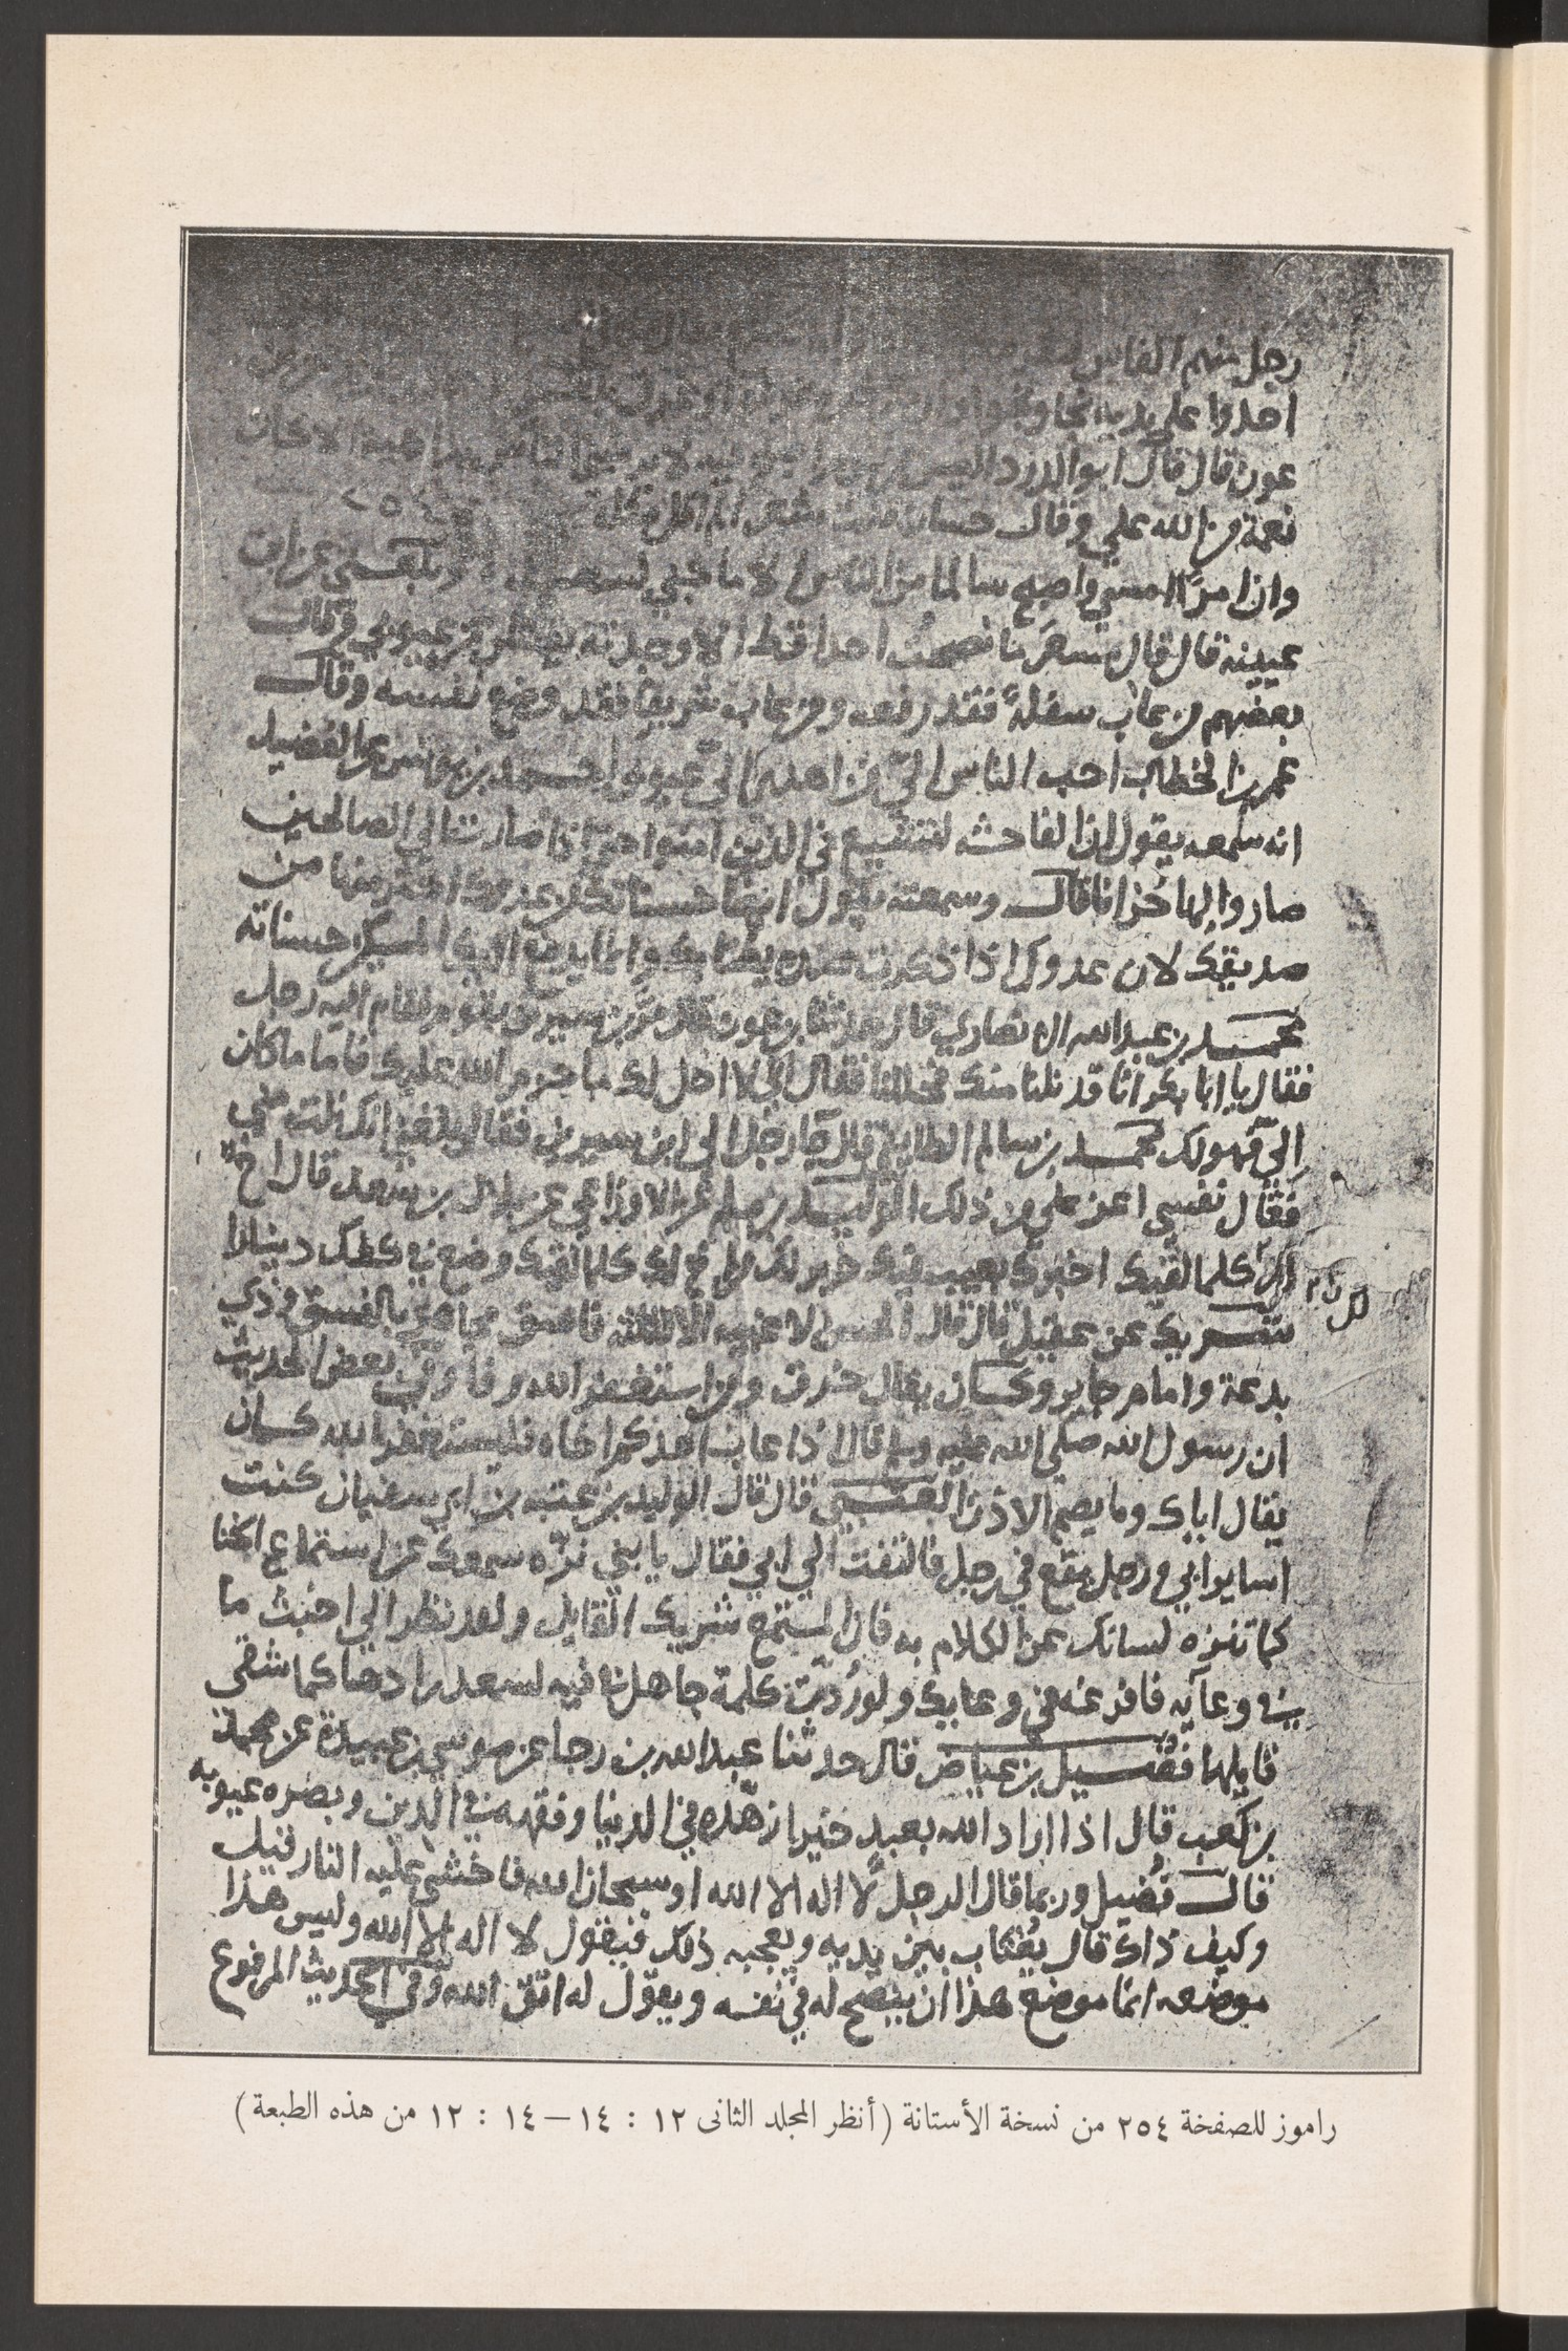 رجل منهم الفاس
اخذوا على يديه نجا ونجوا
عون قال قال ابو الدرداء ليس من يوم اصبح فيه لا يرميني الناس بداهية الا كان
نعمة من الله علي وقال حسان شعر
وان امرأ امسى واصبح سالما من الناس الا ما جنى لسعيد وبلغني عن ابن
عيينة قال قال مسعر ما نصحت احدا قط الا وجدته يفتش عن عيوبي وقال
بعضهم من عاب سفلة فقد رفعه ومن عاب شريفا فقد وضع نفسه وقال
عمر بن الخطاب احب الناس الي من اهدى الي عيوبي احمد بن يونس عن الفضيل
انه سمعه يقول ان الفاحشة لتشيع في الذين امنوا حتى اذا صارت الى الصالحين
صاروا لها خزانا قال وسمعته يقول ايضا حسناتك من عدوك اكثر منها من
صديقك لان عدوك اذا ذكرت عنده يغتابك وانما يدفع اليك المسكين حسناته
محمد بن عبد الله الانصاري قال حدثنا ابن عون قال مر ابن سيرين بقوم فقام اليه رجل
فقال يا ابا بكر انا قد نلنا منك فحللنا فقال اني لا احل لك ما حرم الله عليك فاما ما كان
الي فهو لك محمد بن مسلم الطايفي قال جا رجل الى ابن سيرين فقال بلغني انك نلت مني
فقال نفسي اعز علي من ذلك الوليد بن مسلم عن الاوزاعي عن بلال بن سعد قال اخ
لك كلما لقيك اخبرك بعيب فيك خير لك من اخ لك كلما لقيك وضع في كفك دينارا
شريك عن عقيل قال قال الحسن لا غيبة الا لثلثة فاسق مجاهر بالفسق وذي
بدعة وامام جاير وكان يقال خرق ومن استغفر الله رفا وفي بعض الحديث
ان رسول الله صلى الله عليه وسلم قال اذا عاب احدكم اخاه فليستغفر الله كان
يقال اياك وما يصم الاذن العتبي قال قال الوليد بن عتبه بن ابي سفيان كنت
اساير ابي ورجل يقع في رجل فالتفت الي ابي فقال يا بني نزه سمعك عن استماع الخنا
كما تنزه لسانك عن الكلام به فان المستمع شريك القايل ولقد نظر الى اخبث ما
في وعآيه فافرغه في وعايك ولو رُدّت كلمة جاهل في فيه لسعد رادها كما شقي
قايلها فضيل بن عياض قال حدثنا عبد الله بن رجا عن موسى بن عبيدة عن محمد
بن كعب قال اذا اراد الله بعبد خيرا زهّده في الدنيا وفقهه في الدين وبصره عيوبه
قال فُضيل وربما قال الرجل لا اله الا الله او سبحان الله فاخشى عليه النار قيل
وكيف ذاك قال يُغتاب بين يديه ويعجبه ذلك فيقول لا اله الا الله وليس هذا
موضعه انما موضع هذا ان ينصح له في نفسه ويقول له اتق الله وفي الحديث المرفوع
راموز للصفخة ٢٥٤ من نسخة الأستانة (أنظر المجلد الثانى ١٢ : ١٤ — ١٤ : ١٢ من هذه الطبعة)